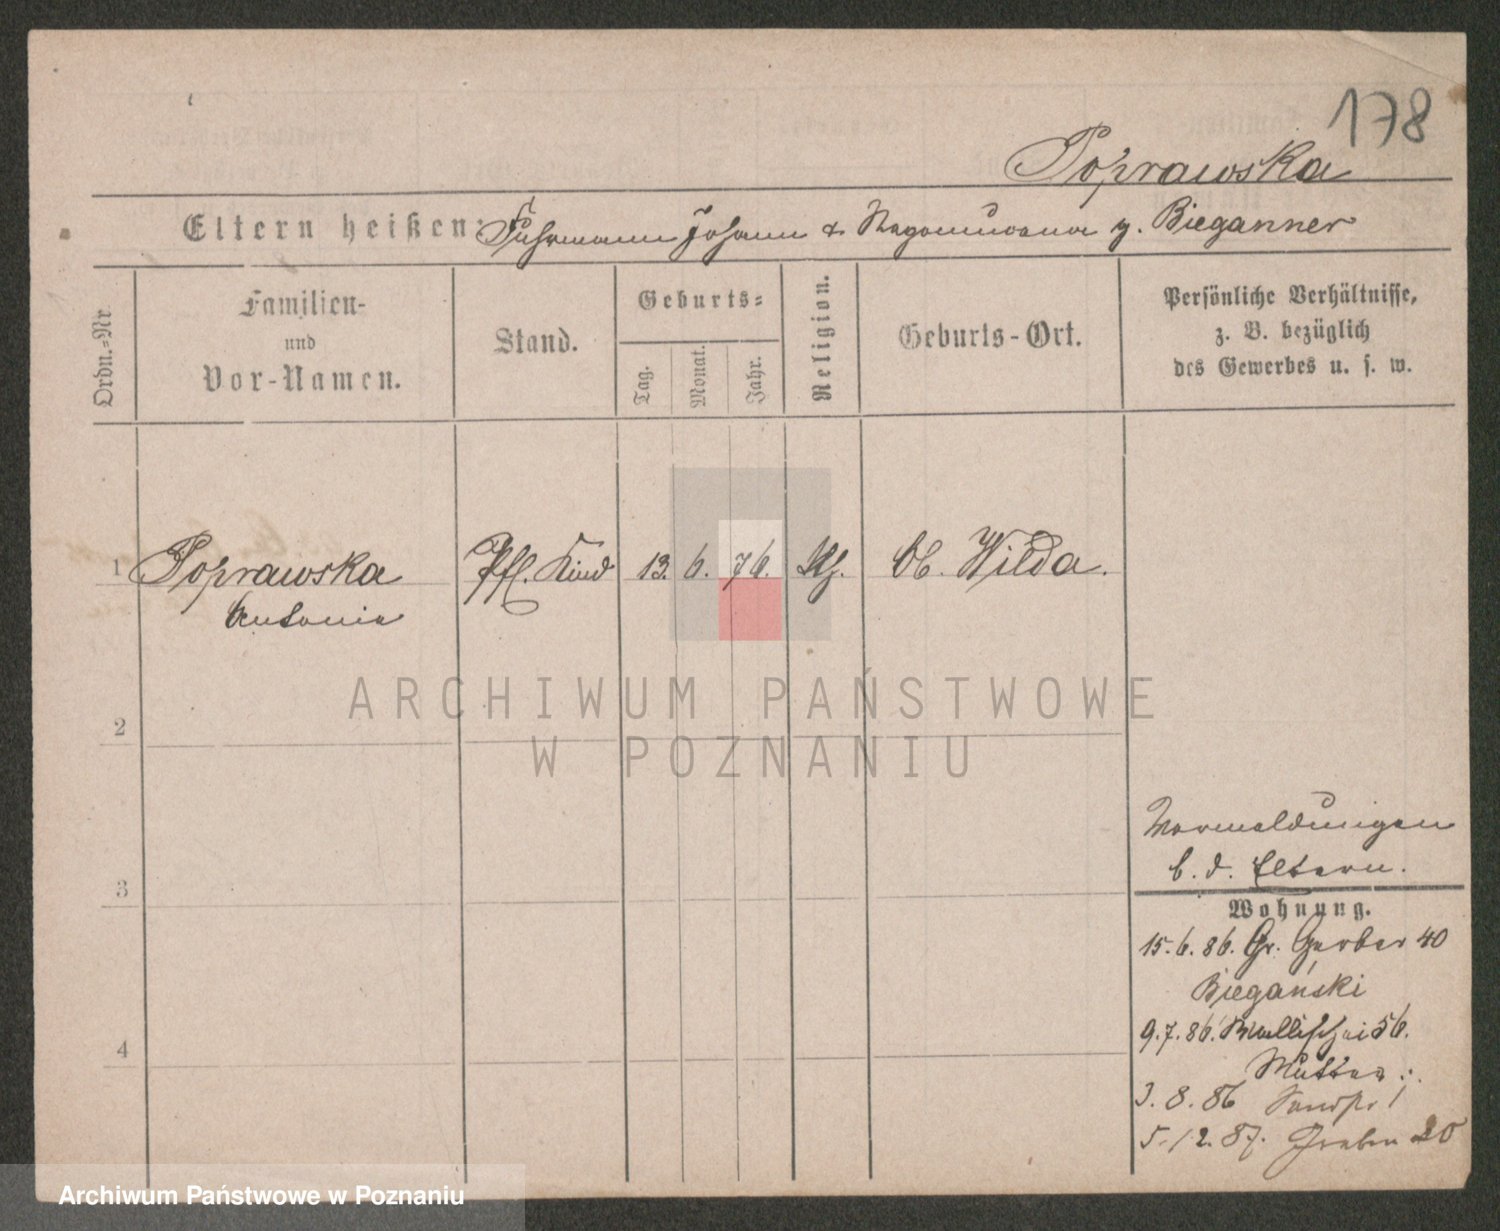 178
Poprawska
Eltern heißen: Fuhrmann Johann & Nepomucena g. Bieganner
Ordn.-Nr.
Familien-
und
Vor-Namen.
Stand.
Geburts-
Tag.
Monat.
Jahr.
Religion.
Geburts-Ort.
Persönliche Verhältnisse,
z. B. bezüglich
des Gewerbes u. s. w.
1 Poprawska Pfl. Kind 13. 6. 76. Ob. Wilda.
Antonie
2
3
4
Vormeldungen
b. d. Eltern.
Wohnung.
15.6.86. Gr. Gerber 40
Biegański
9.7.86. Wallischei 56.
Mutter
3.8.86 1
5.12.87. Graben 20
ARCHIWUM PAŃSTWOWE
W POZNANIU
Archiwum Państwowe w Poznaniu